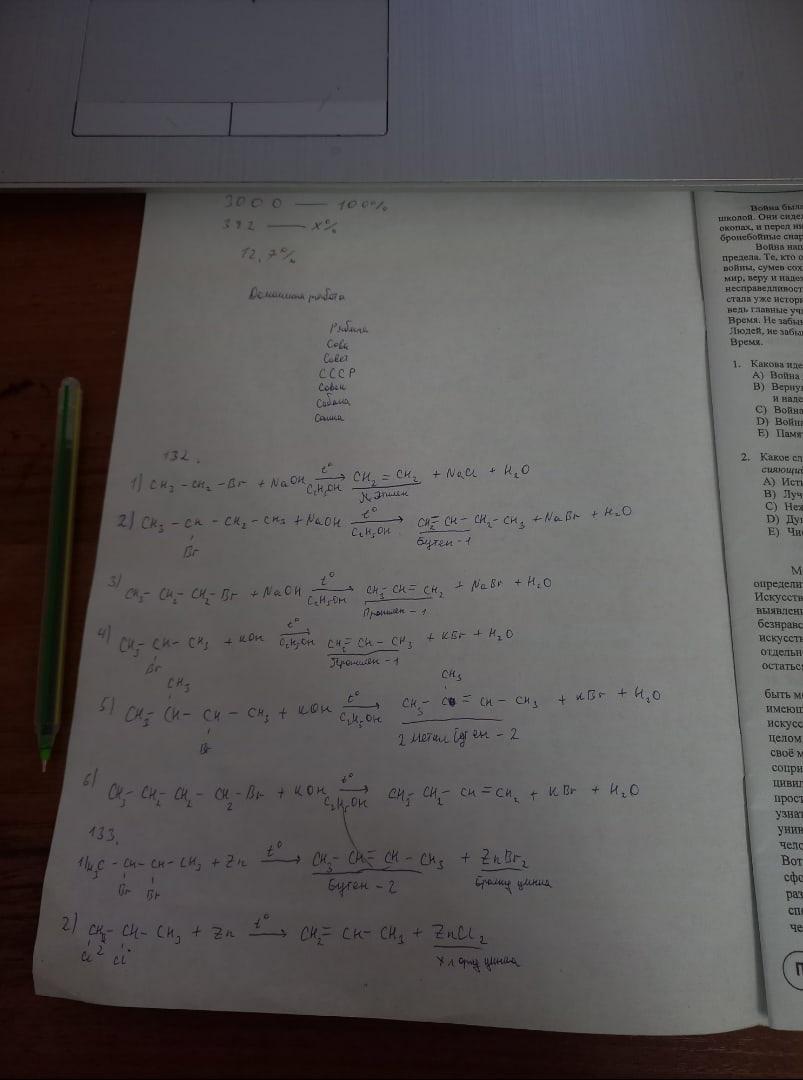 3000 — 100%
382 — x%
12,7%
Домашняя работа
Рябина
Сова
Совет
СССР
Совок
Собака
132.
1) CH₃ – CH₂ – Br + NaOH t° C₂H₅OH → CH₂ = CH₂ + NaCl + H₂O
Этилен
2) CH₃ – CH – CH₂ – CH₃ + NaOH t° C₂H₅OH → CH₂= CH – CH₂ – CH₃ + NaBr + H₂O
Br
Бутен – 1
3) CH₃ – CH₂ – CH₂ – Br + NaOH t° C₂H₅OH → CH₃ – CH = CH₂ + NaBr + H₂O
Пропилен – 1
4) CH₃ – CH – CH₃ + KOH t° C₂H₅OH → CH₂= CH – CH₃ + KBr + H₂O
Br
Пропилен – 1
CH₃ CH₃
5) CH₃ – CH – CH – CH₃ + KOH t° C₂H₅OH → CH₃ – C = CH – CH₃ + KBr + H₂O
Br
2 метил бутен – 2
6) CH₃ – CH₂ – CH₂ – CH₂ – Br + KOH t° C₂H₅OH → CH₃ – CH₂ – CH = CH₂ + KBr + H₂O
133.
1) H₃C – CH – CH – CH₃ + Zn t° → CH₃ – CH = CH – CH₃ + ZnBr₂
Br Br
Бутен – 2
бромид цинка
2) CH₂ – CH – CH₃ + Zn t° → CH₂= CH – CH₃ + ZnCl₂
Cl Cl
хлорид цинка
Война был
школой. Они сиде
окопах, и перед н
бронебойные снар
Война нап
предела. Те, кто о
войны, сумев сох
мир, веру и надеж
несправедливост
стала уже истори
ведь главные учи
Время. Не забыв
Людей, не забы
Время.
1. Какова иде
A) Война
B) Верну
и наде
C) Война
D) Война
E) Памя
2. Какое сл
сияющи
A) Исти
B) Луч
C) Неж
D) Ду
E) Чи
М
определи
Искусств
выявлени
безнравс
искусств
отдельн
остатьс
быть м
имеющ
искусс
целом
своё м
сопри
цивил
прост
узнат
уник
чело
Вот
сфе
раз
сп
че
П